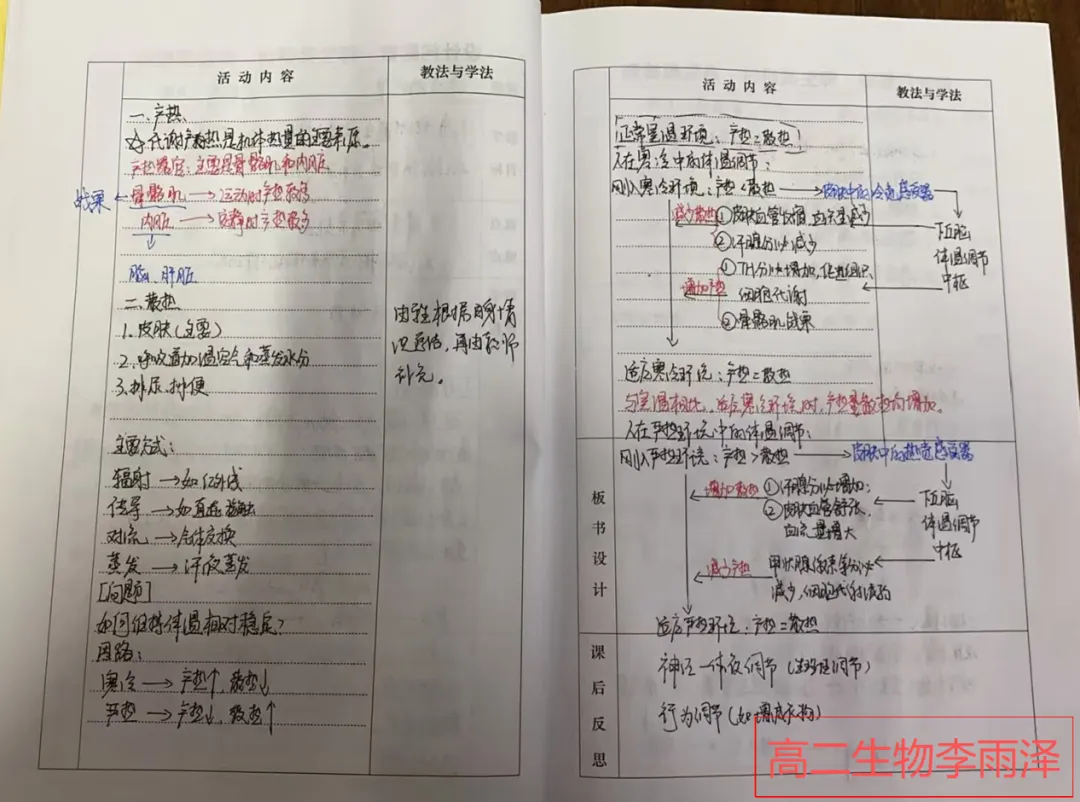 活动内容
教法与学法
一、产热
☆代谢产热是机体热量的主要来源。
产热器官：主要是骨骼肌和内脏
战栗←骨骼肌→运动时产热较多
内脏→安静时产热较多
脑、肝脏
二、散热
1.皮肤（主要）
2.呼吸道加温空气和蒸发水分
3.排尿、排便
由学生根据自身情
况总结，再由教师
补充。
主要方式：
辐射→如红外线
传导→如直接接触
对流→气体交换
蒸发→汗液蒸发
[问题]
如何维持体温相对稳定？
思路：
寒冷→产热↑，散热↓
炎热→产热↓，散热↑
活动内容
教法与学法
正常室温环境：产热=散热！
人在寒冷中的体温调节：
刚从寒冷环境：产热<散热→皮肤中的冷觉感受器
减少散热
①皮肤血管收缩，血流量减少
②汗腺分泌减少
增加产热
①TH分泌增加，促进组织
细胞代谢
②骨骼肌战栗
下丘脑
体温调节
中枢
适应寒冷环境：产热=散热
与室温相比，适应寒冷环境时，产热量散热均增加。
人在炎热环境中的体温调节：
刚从炎热环境：产热>散热→皮肤中的热觉感受器
增加散热
①汗腺分泌增加；
②皮肤血管舒张，
血流量增大
减少产热
甲状腺激素等分泌
减少，细胞代谢减弱
下丘脑
体温调节
中枢
适应炎热环境：产热=散热
板书设计
课后反思
神经-体液调节（生理性调节）
行为调节（如增减衣物）
高二生物李雨泽